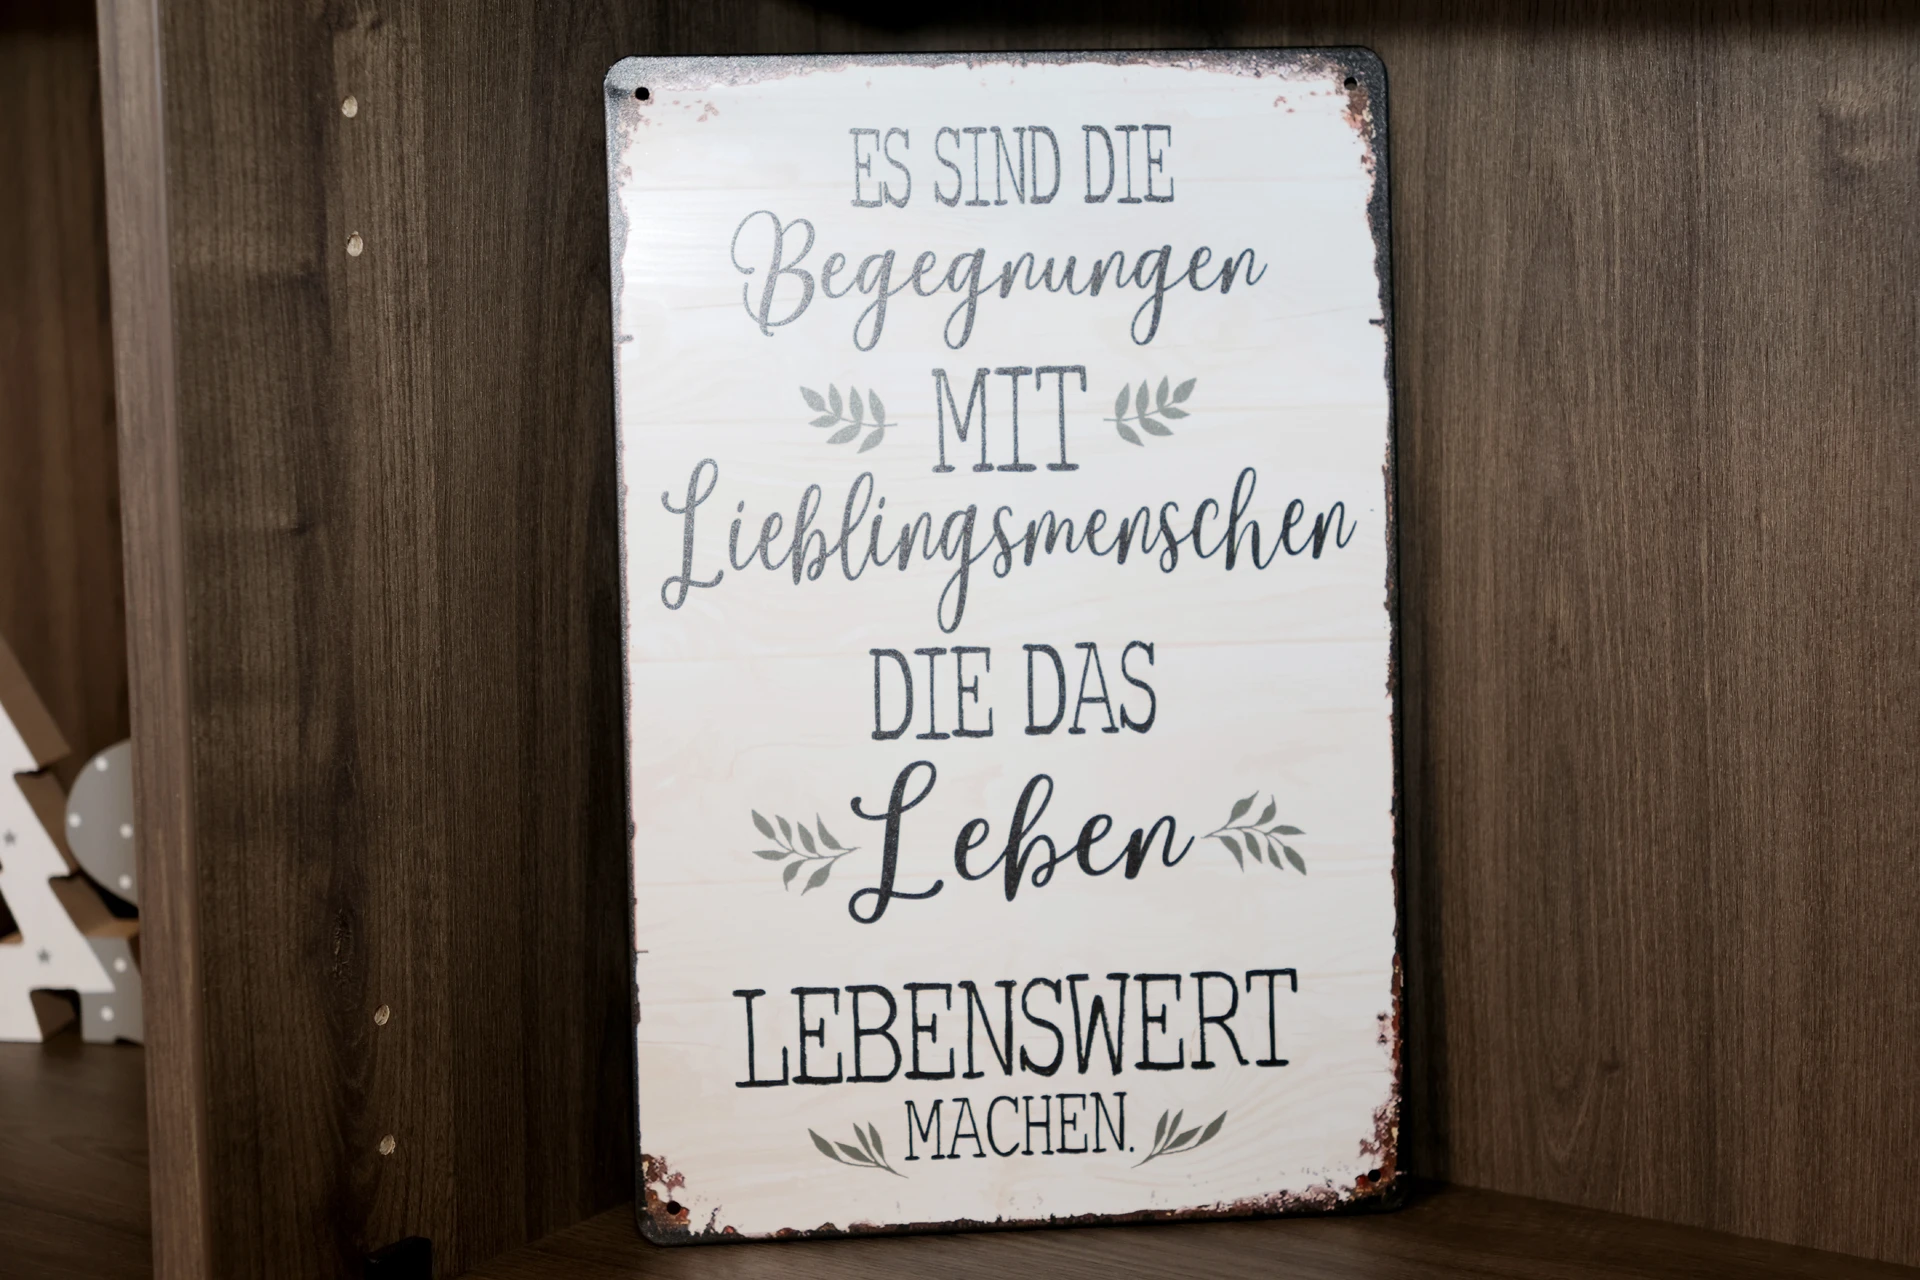 ES SIND DIE
Begegnungen
MIT
Lieblingsmenschen
DIE DAS
Leben
LEBENSWERT
MACHEN.